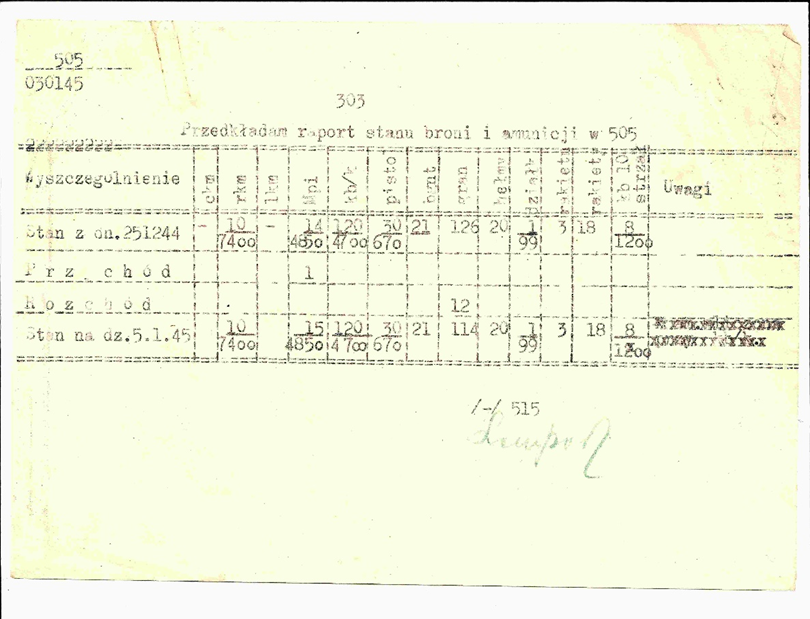 505
030145
303
Przedkładam raport stanu broni i amunicji w 505
Wyszczegolnienie ckm rkm lkm Mpi kb/k pisto gran hełmy działk rakiety kb 10 strzał Uwagi
Stan z dn.251244 - 10/7400 - 14/4850 120/4700 30/670 21 126 20 1/99 3 18 8/1200
P r z y c h ó d 1
R o z c h ó d 12
Stan na dz.5.1.45 10/7400 15/4850 120/4700 30/670 21 114 20 1/99 3 18 8/1200
/-/ 515